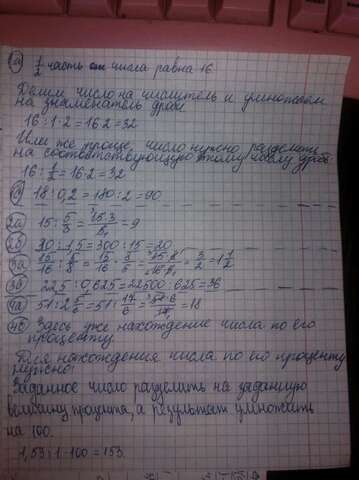 1а) 1/2 часть числа равна 16.
Делим число на числитель и умножаем
на знаменатель дроби
16 : 1 · 2 = 16 · 2 = 32
Или же проще, число нужно разделить
на соответствующую этому числу дробь
16 : 1/2 = 16 · 2 = 32
1б) 18 : 0,2 = 180 : 2 = 90
2а) 15 : 5/3 = 15·3/5 = 9
2б) 30 : 1,5 = 300 : 15 = 20
3а) 15/16 : 5/8 = 15/16 · 8/5 = 15·8/16·5 = 3/2 = 1 1/2
3б) 22,5 : 0,625 = 22500 : 625 = 36
4а) 51 : 2 5/6 = 51 : 17/6 = 51·6/17 = 18
4б) Здесь уже нахождение числа по его
проценту.
Для нахождения числа по его проценту
нужно:
Заданное число разделить на заданную
величину процента, а результат умножить
на 100.
1,53 : 1 · 100 = 153.